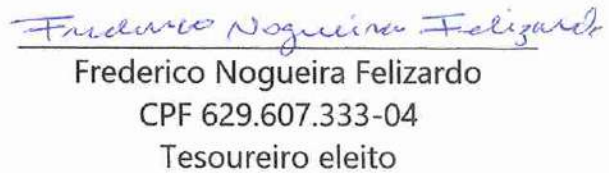 Frederico Nogueira Felizardo
Frederico Nogueira Felizardo
CPF 629.607.333-04
Tesoureiro eleito